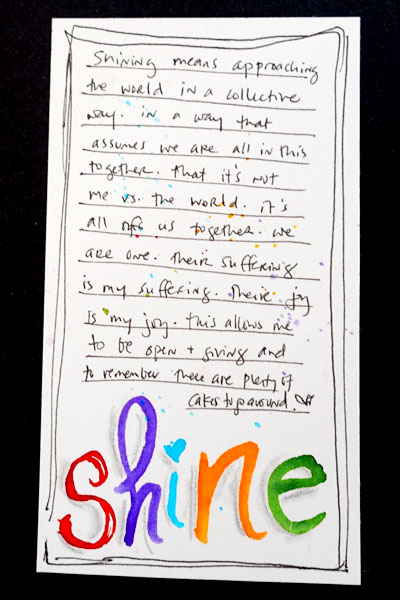 Shining means approaching
the world in a collective
way. in a way that
assumes we are all in this
together. that it's not
me vs. the world. it's
all of us together. we
are one. their suffering
is my suffering. their joy
is my joy. this allows me
to be open + giving and
to remember there are plenty of
cakes to go around.
shine